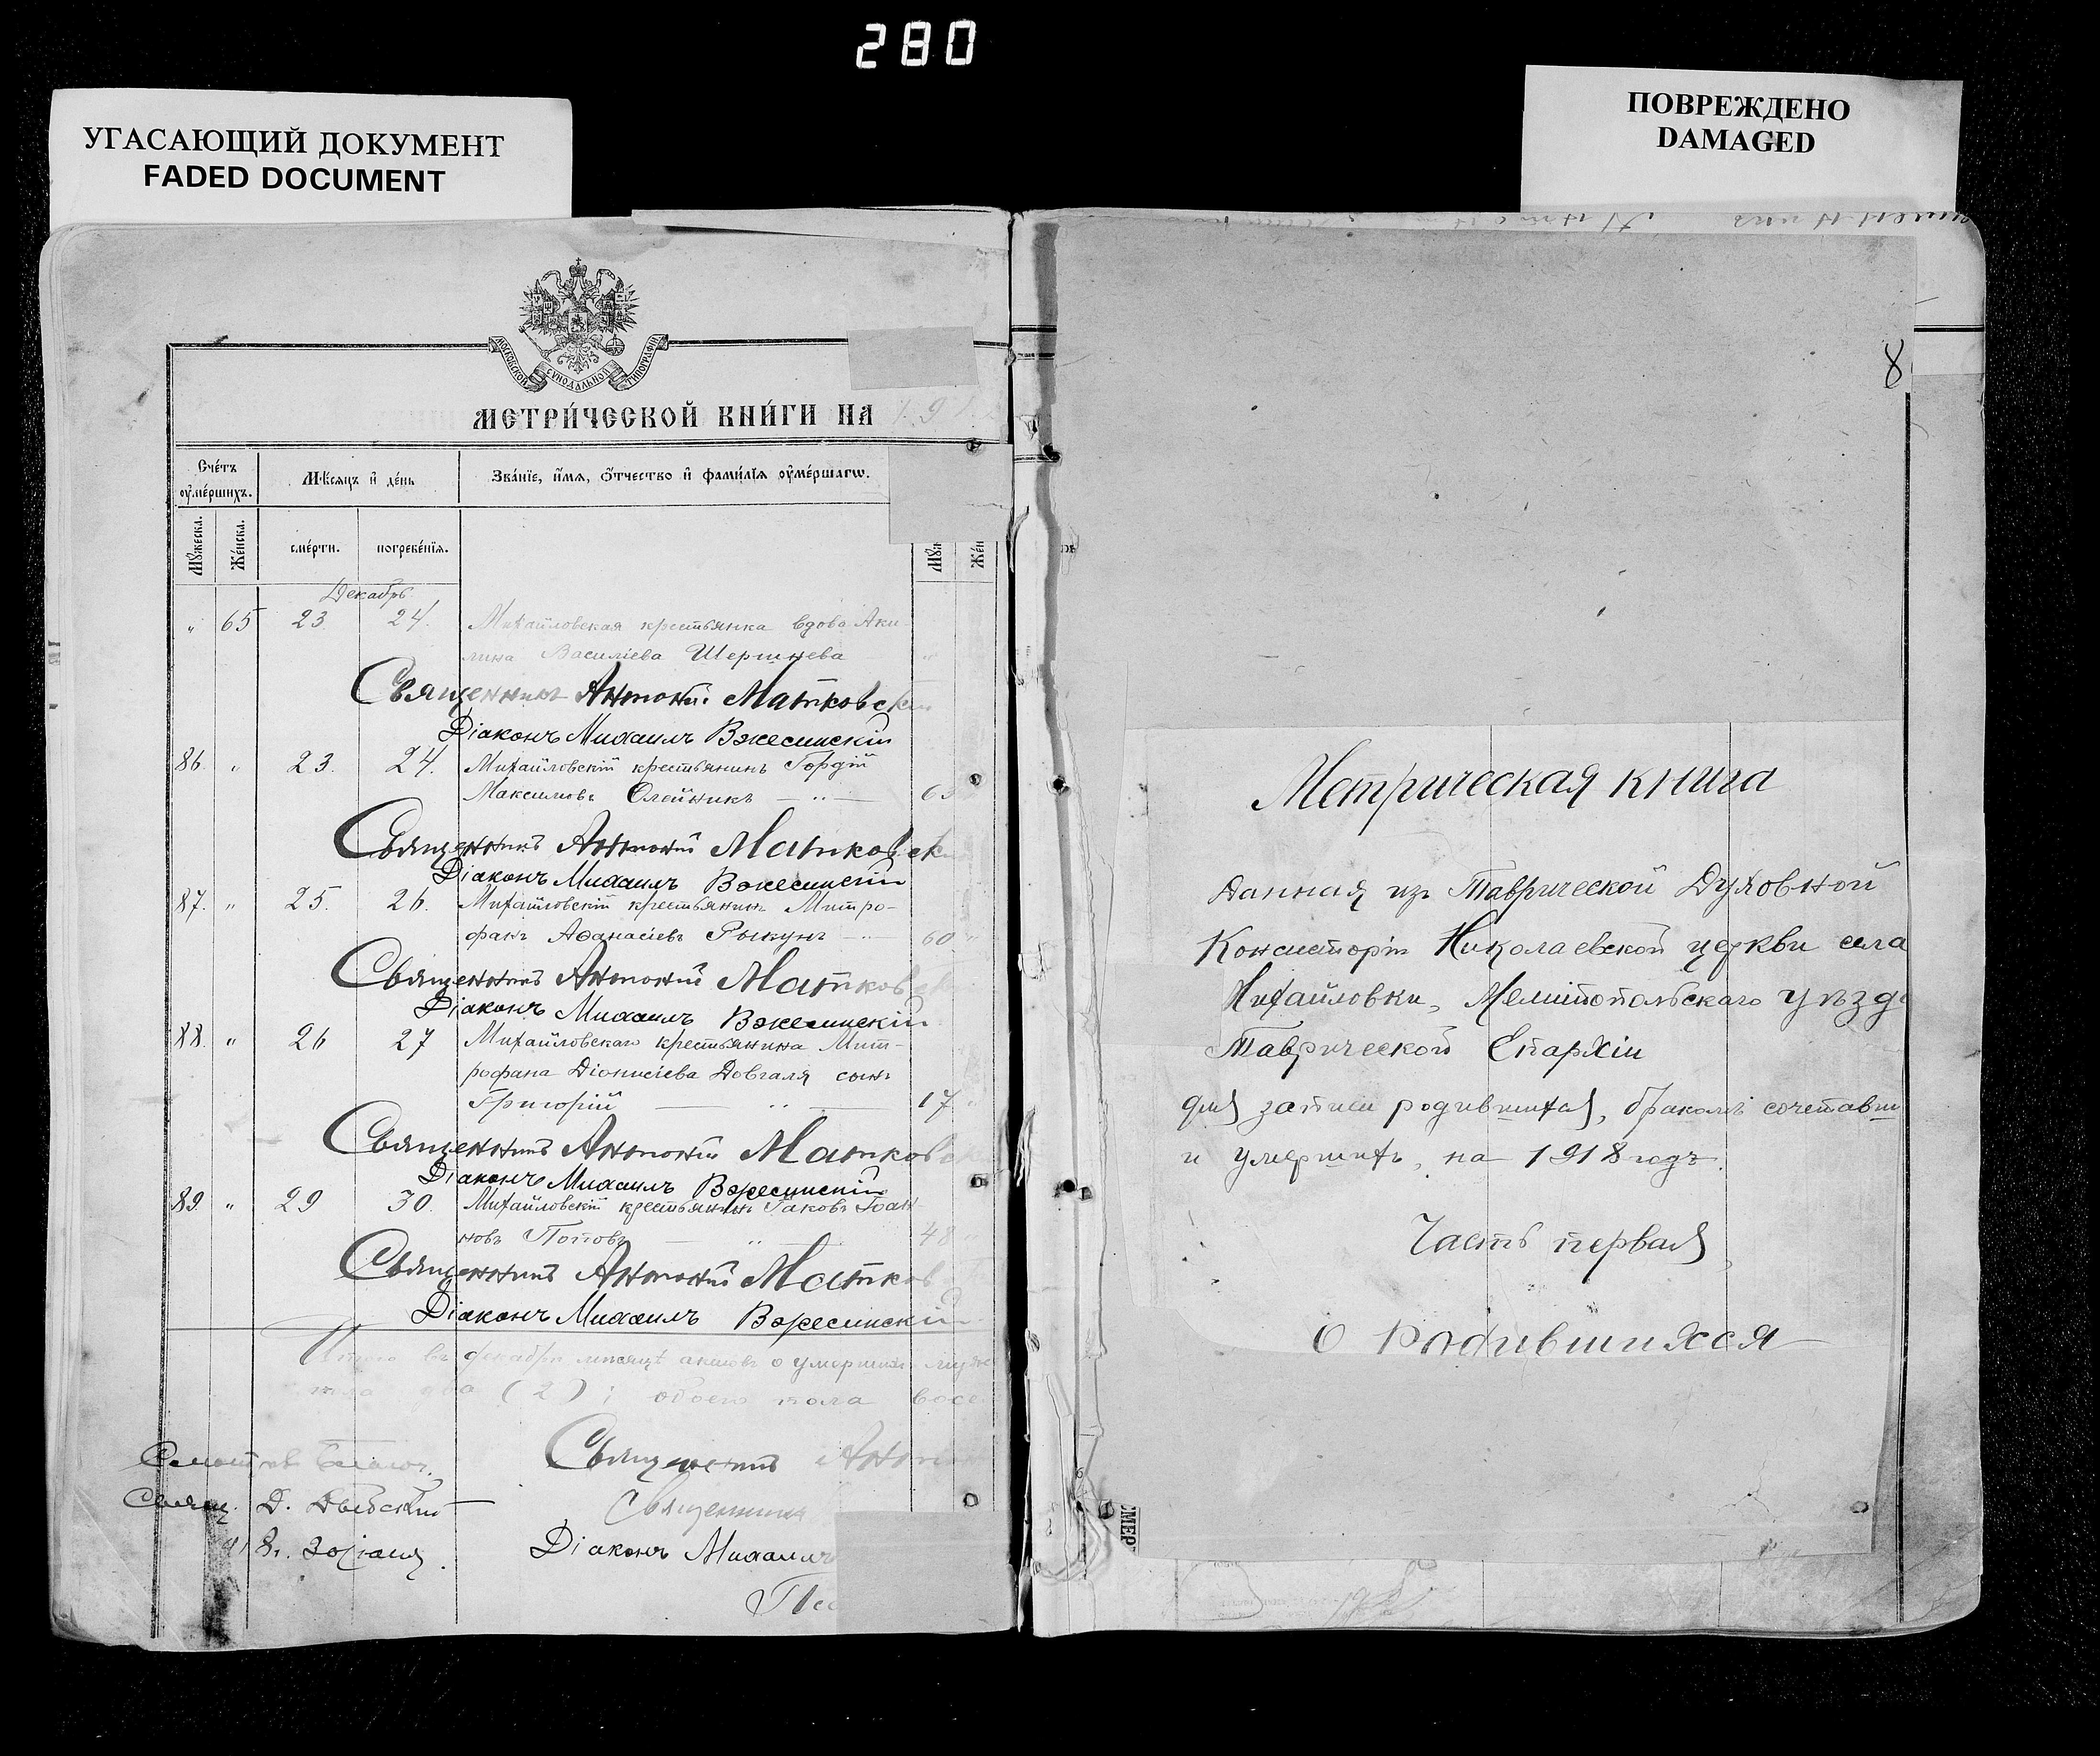 280
УГАСАЮЩИЙ ДОКУМЕНТ
FADED DOCUMENT
ПОВРЕЖДЕНО
DAMAGED
МОСКОВСКОЙ СѴНОДАЛЬНОЙ ТИПОГРАФІИ
МЕТРИ́ЧЕСКОЙ КНИ́ГИ НА 19
Сче́тъ ᲂу҆ме́ршихъ.
Мѣ́сяцъ и҆ де́нь
Зва́нїе, и҆́мѧ, ѻ҆́тчество и҆ фами́лїѧ ᲂу҆ме́ршагѡ.
Мꙋ́жеска.
Же́нска.
сме́рти.
погребе́нїѧ.
Мꙋж
Жен
Декабрь
" 65 23 24. Михайловская крестьянка вдова Аки-
лина Василіева Шершнева "
Священникъ Антоній Матковскій
Діаконъ Михаилъ Вжесинскій
86. " 23. 24. Михайловскій крестьянинъ Гордій
Максимовъ Олейникъ — " —
Священникъ Антоній Матковск
Діаконъ Михаилъ Вжесинскій
87. " 25. 26. Михайловскій крестьянинъ Митро-
фанъ Аѳанасіевъ Рыкунъ — " 60 "
Священникъ Антоній Матковск
Діаконъ Михаилъ Вжесинскій
88. " 26 27 Михайловскаго крестьянина Мит-
рофана Діонисіева Довгаля сынъ
Григорій — " — 17 "
Священникъ Антоній Матковс
Діаконъ Михаилъ Вжесинскій
89. " 29 30. Михайловскій крестьянинъ Іаковъ Іоан
новъ Поповъ — " — 48
Священникъ Антоній Матков
Діаконъ Михаилъ Вжесинскій
Итого въ декабрѣ мѣсяцѣ актовъ о умершихъ муж
пола два (2); обоего пола восе
Священникъ Антоній
Священникъ
Діаконъ Михаилъ
Пс
Свящ. Д.
8
Метрическая книга
Данная изъ Таврической Духовной
Консисторіи Николаевской церкви села
Михайловки, Мелитопольскаго уѣзда
Таврической Епархіи
для записи родившихся, бракомъ сочетавш
и умершихъ, на 1918 годъ.
Часть первая,
О Родившихся
СМЕР